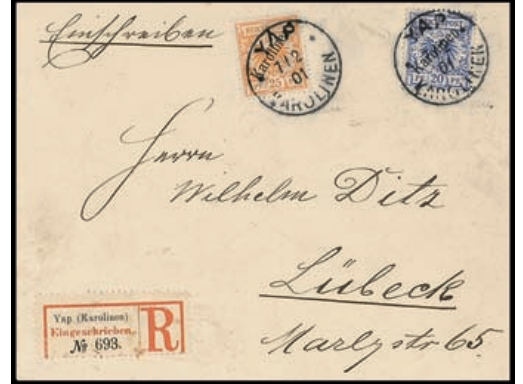 Einschreiben
YAP
Karolinen
7/2
01
KAROLINEN
25
YAP
Karolinen
01
KAROLINEN
20
Herrn
Wilhelm Ditz
Lübeck
Marlystr 65
Yap (Karolinen)
Eingeschrieben.
№ 693.
R